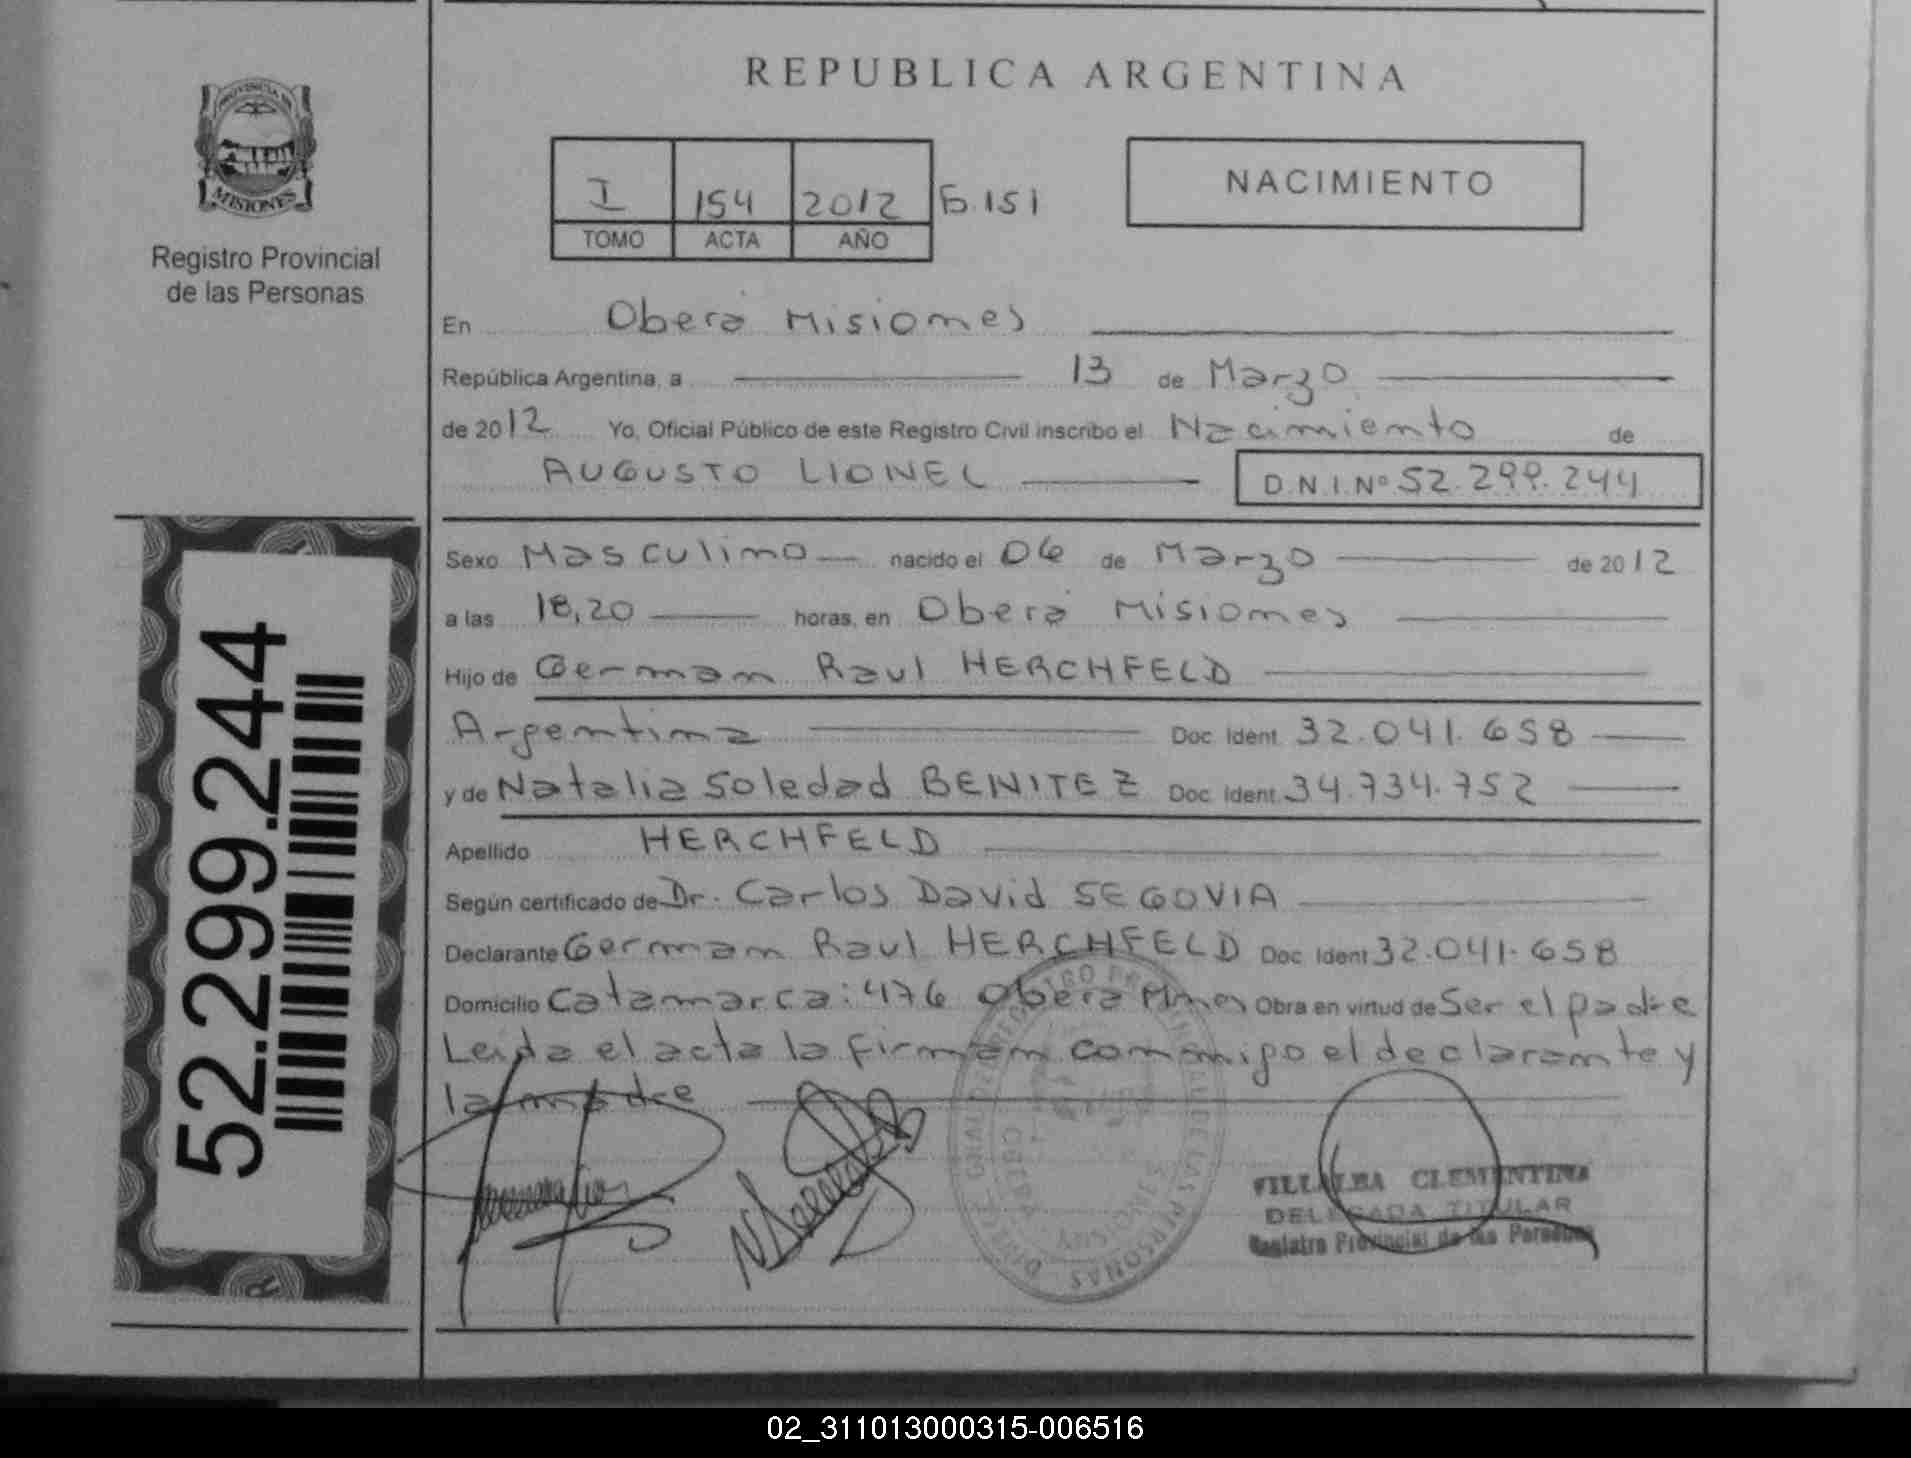 REPUBLICA ARGENTINA
PROVINCIA DE
MISIONES
Registro Provincial
de las Personas
I 154 2012 F.151
TOMO ACTA AÑO
NACIMIENTO
En Oberá Misiones
República Argentina, a 13 de Marzo
de 2012 Yo, Oficial Público de este Registro Civil inscribo el Nacimiento de
AUGUSTO LIONEL D.N.I.Nº 52.299.244
Sexo Masculino nacido el 06 de Marzo de 2012
a las 18,20 horas, en Oberá Misiones
Hijo de German Raul HERCHFELD
Argentina Doc. Ident. 32.041.658
y de Natalia Soledad BENITEZ Doc. Ident. 34.734.752
Apellido HERCHFELD
Según certificado de Dr. Carlos David SEGOVIA
Declarante German Raul HERCHFELD Doc. Ident 32.041.658
Domicilio Catamarca: 476 Oberá Mnes Obra en virtud de Ser el padre
Leida el acta la firman conmigo el declarante y
la madre
52.299.244
VILLALBA CLEMENTINA
DELEGADA TITULAR
Registro Provincial de las Personas
02_311013000315-006516